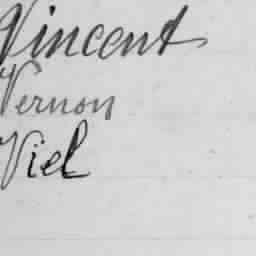 Vincent
Vernon
Viel